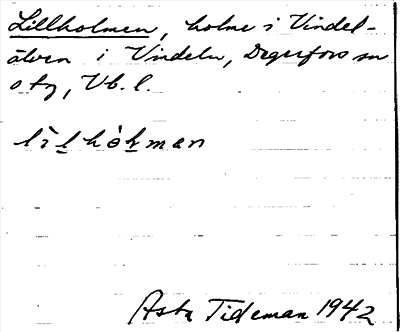 Lillholmen, holme i Vindel-
älven i Vindeln, Degerfors sn
o tg, Vb. l.
Asta Tideman 1942